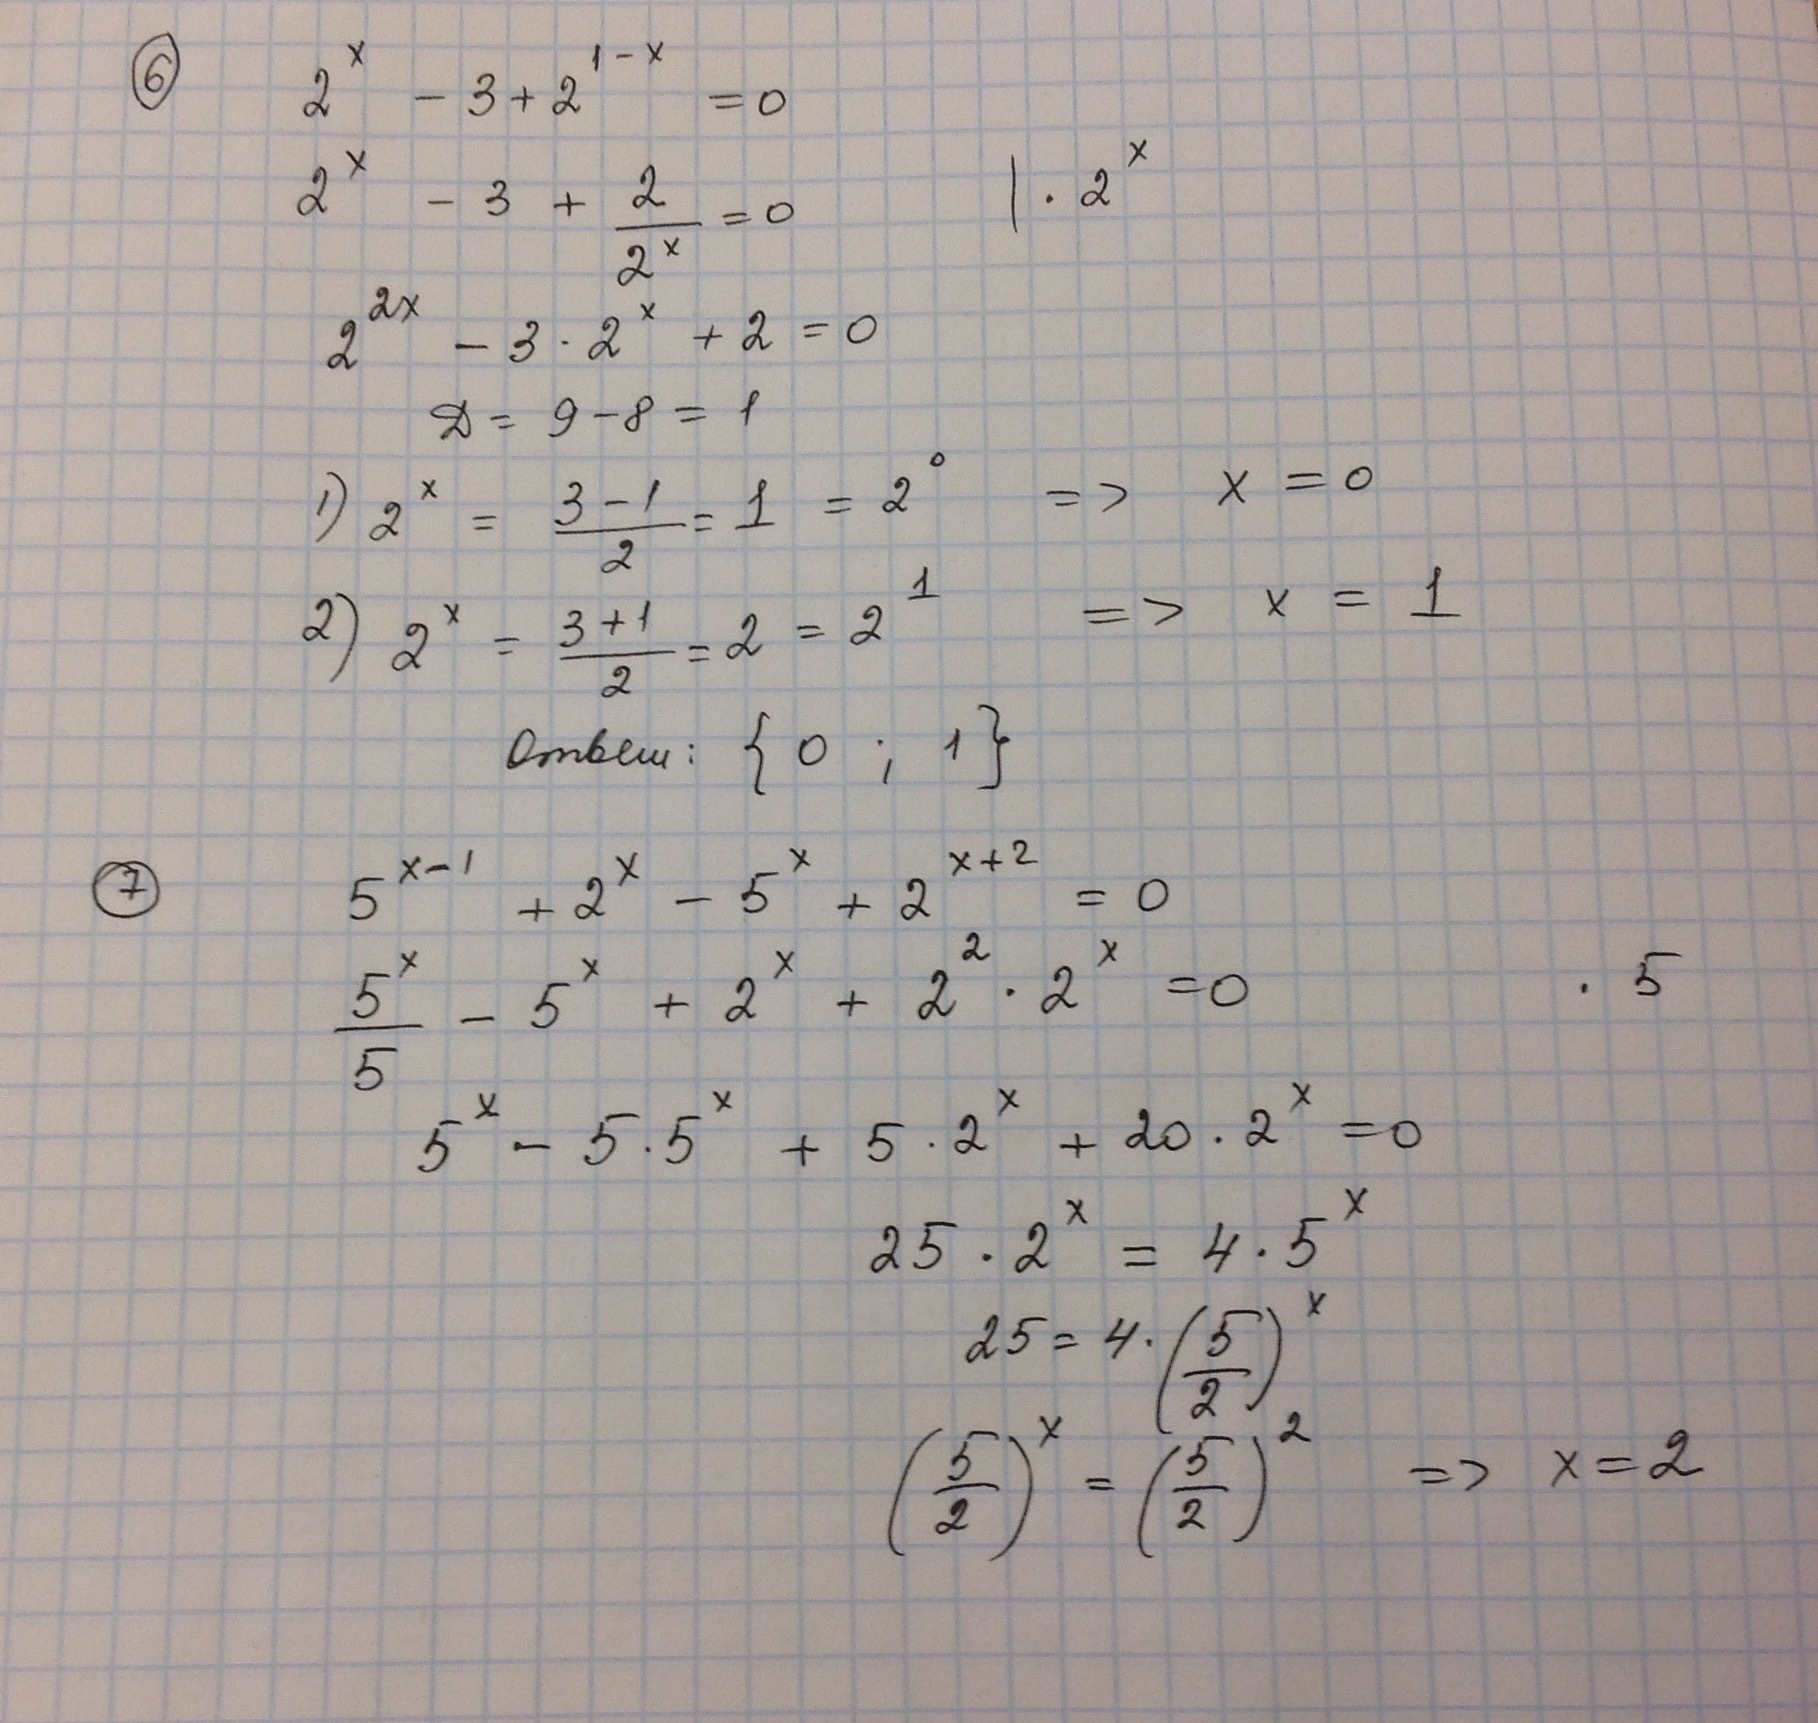 ⑥ 2^x - 3 + 2^{1-x} = 0
2^x - 3 + \frac{2}{2^x} = 0 | · 2^x
2^{2x} - 3 · 2^x + 2 = 0
D = 9 - 8 = 1
1) 2^x = \frac{3-1}{2} = 1 = 2^0 => x = 0
2) 2^x = \frac{3+1}{2} = 2 = 2^1 => x = 1
Ответ: {0 ; 1}
⑦ 5^{x-1} + 2^x - 5^x + 2^{x+2} = 0
\frac{5^x}{5} - 5^x + 2^x + 2^2 · 2^x = 0 · 5
5^x - 5 · 5^x + 5 · 2^x + 20 · 2^x = 0
25 · 2^x = 4 · 5^x
25 = 4 · (\frac{5}{2})^x
(\frac{5}{2})^x = (\frac{5}{2})^2 => x = 2